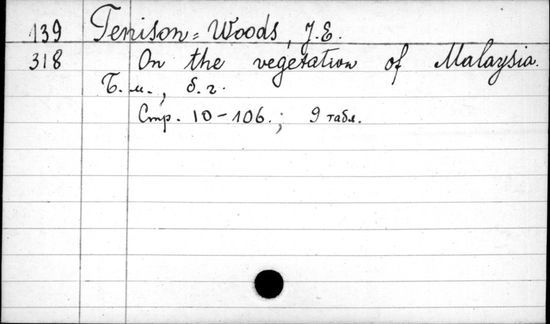 139 Tenison=Woods, J.E.
318 On the vegetation of Malaysia.
Б. м., б. г.
Стр. 10-106.; 9 табл.